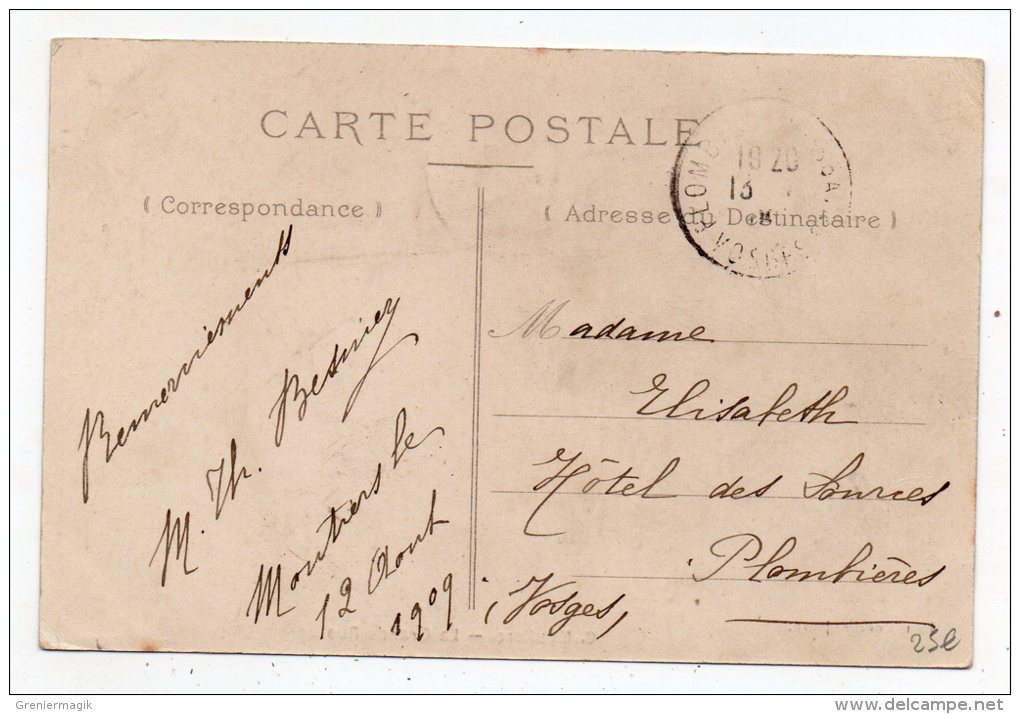 CARTE POSTALE
( Correspondance )
( Adresse du Destinataire )
19 20
13
Remerciements
M. Th. Besnier
Montiers le
12 Aout
1909
Madame
Elisabeth
Hôtel des Sources
Plombières
(Vosges)
25e
Greniermagik
www.delcampe.net